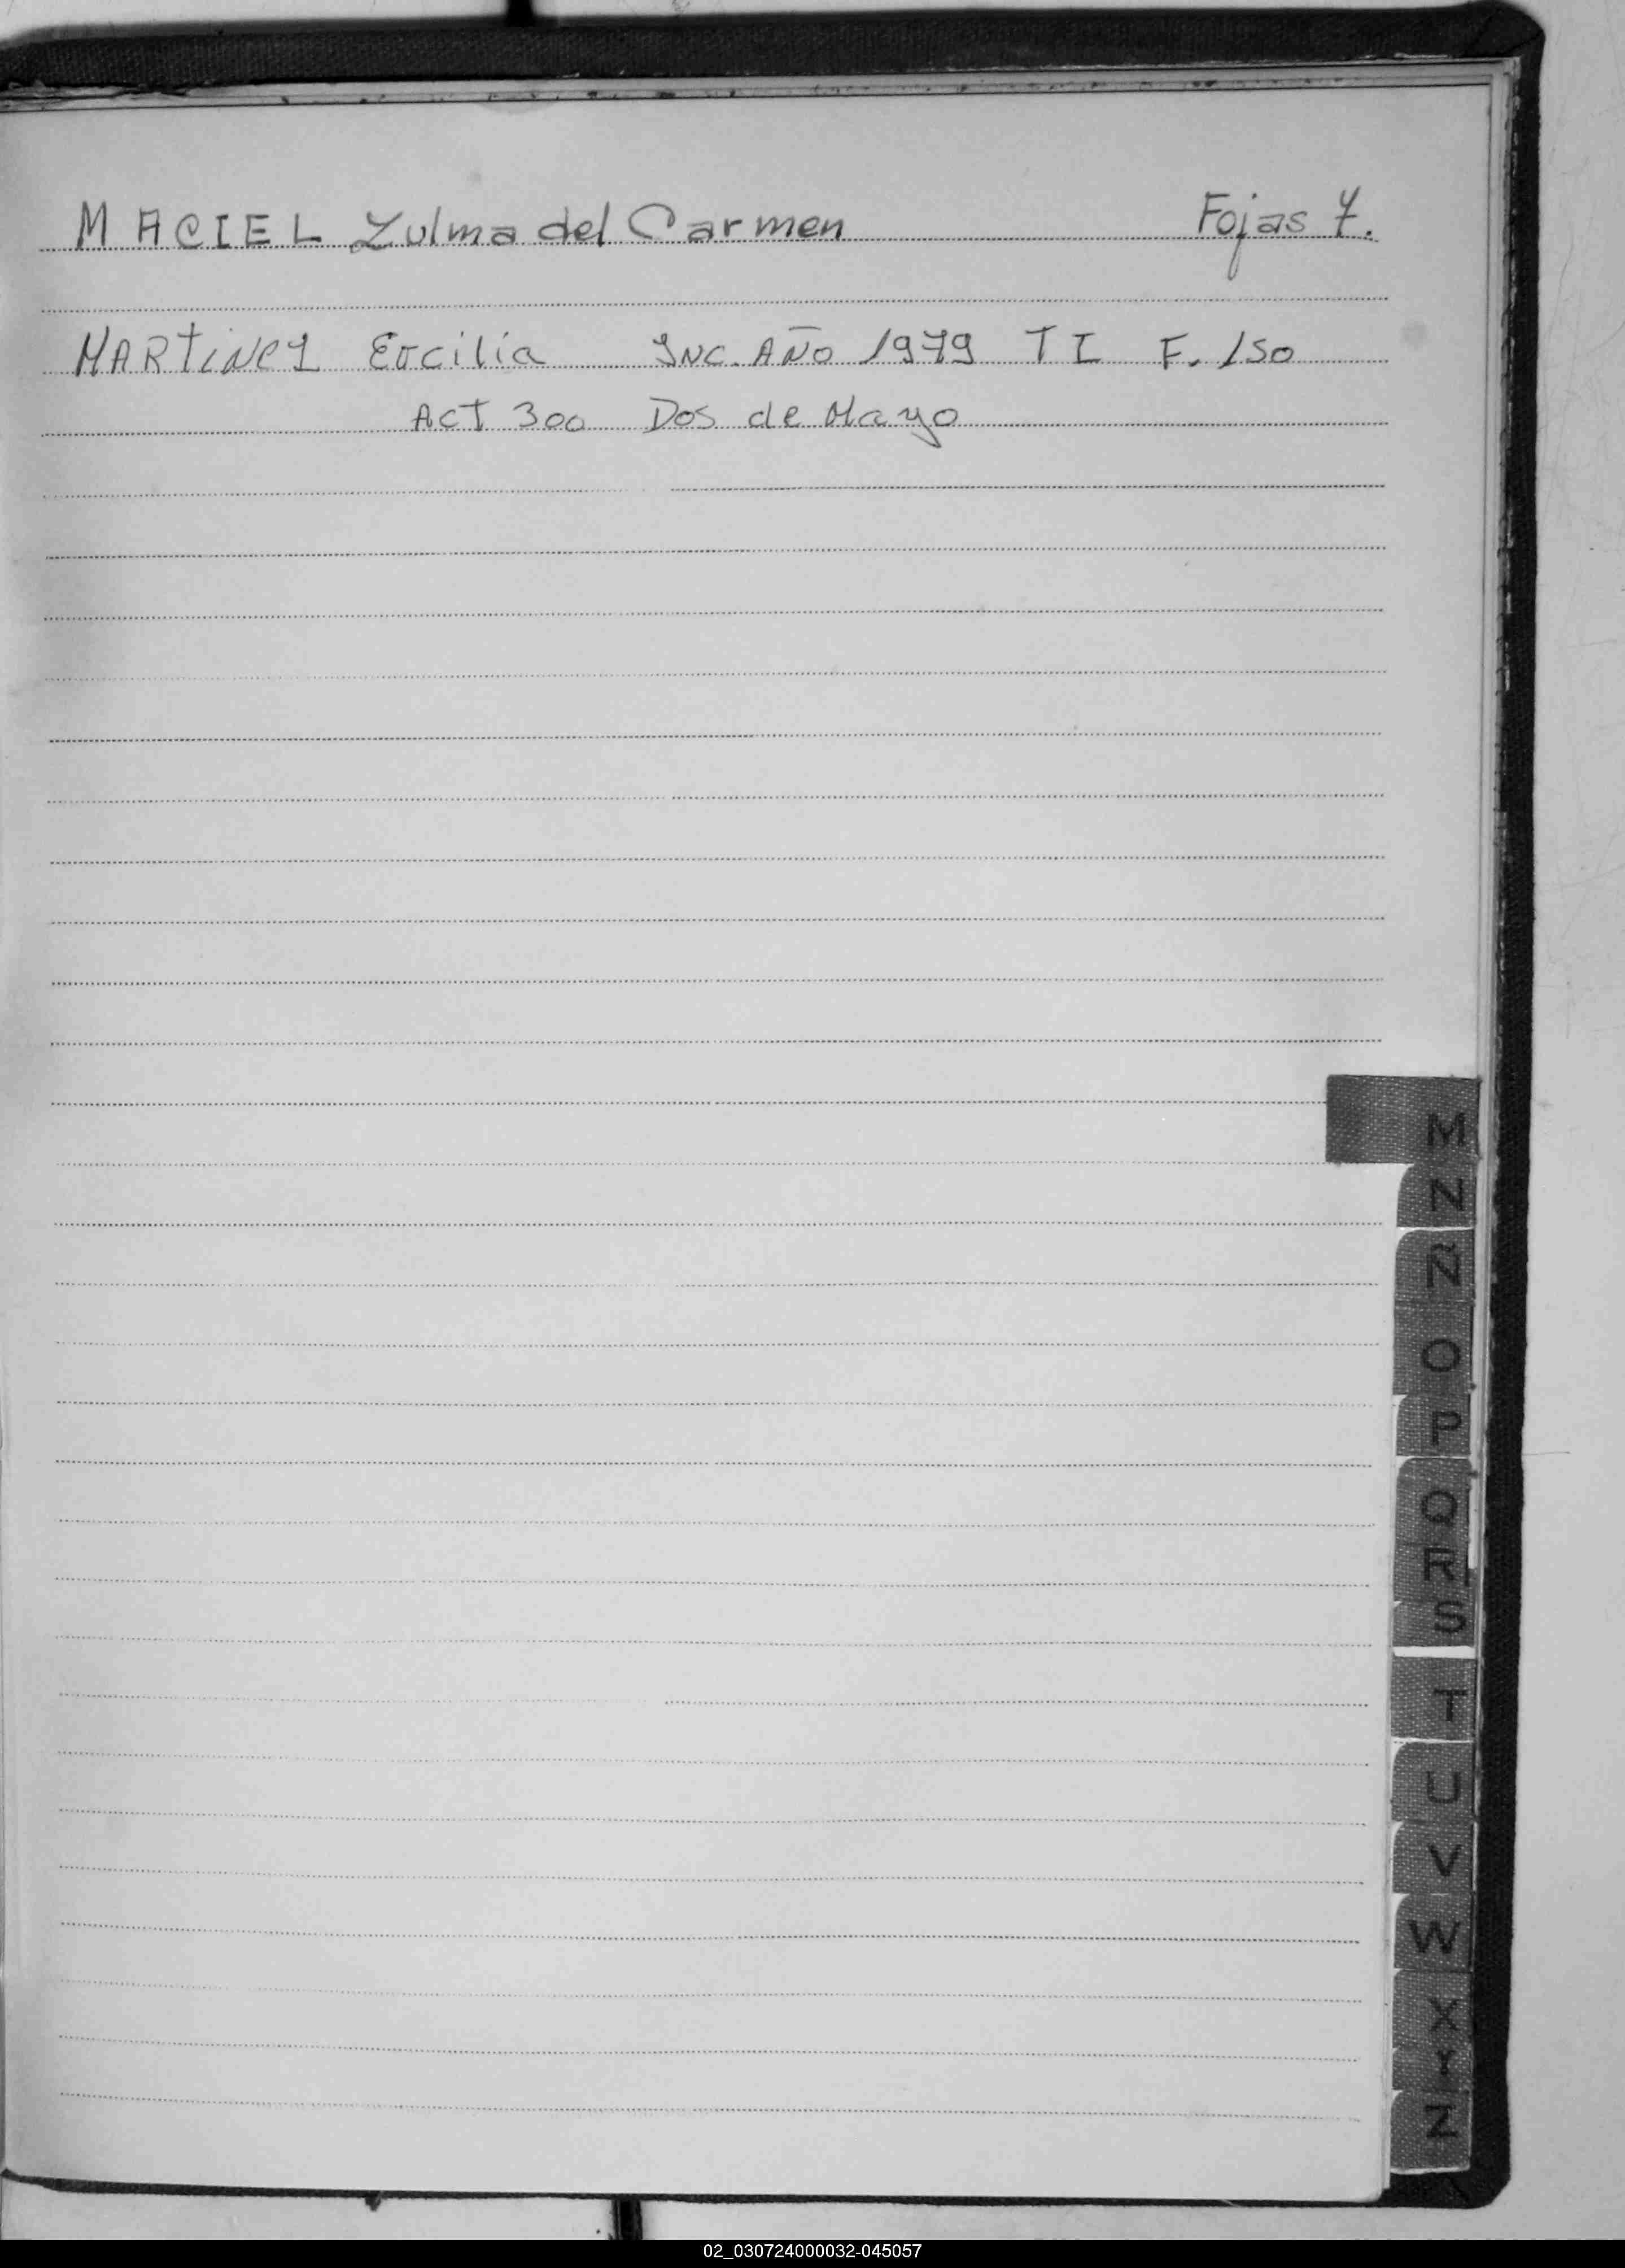 MACIEL Zulma del Carmen Fojas 7.
MARTiNez Ercilia INC. AÑO 1979 T I F. 150
ACT 300 Dos de Mayo
M
N
Ñ
O
P
Q
R
S
T
U
V
W
X
Y
Z
02_030724000032-045057